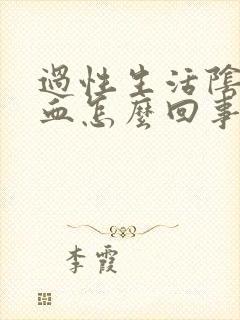 過性生活陰
血怎麼回事
李霞